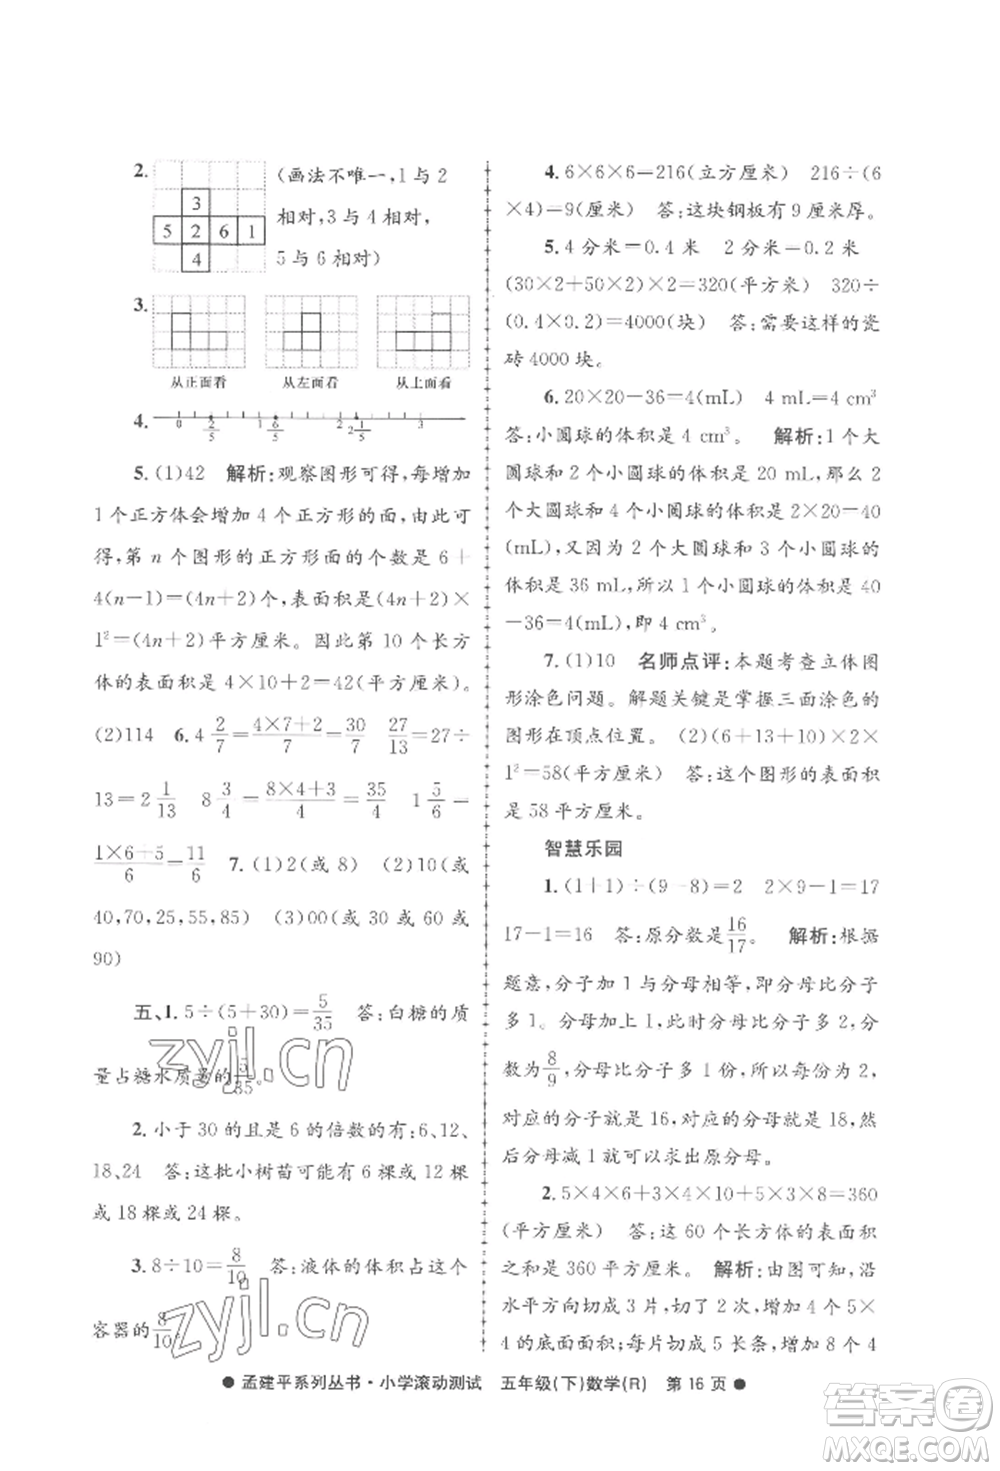 2.
3
5 2 6 1
4
(画法不唯一,1 与 2
相对,3 与 4 相对,
5 与 6 相对)
3.
从正面看 从左面看 从上面看
4.
0 2/5 1 6/5 2 2 1/5 3
5. (1)42 解析:观察图形可得,每增加
1 个正方体会增加 4 个正方形的面,由此可
得,第 n 个图形的正方形面的个数是 6+
4(n-1)=(4n+2)个,表面积是(4n+2)×
1²=(4n+2)平方厘米。因此第 10 个长方
体的表面积是 4×10+2=42(平方厘米)。
(2)114 6. 4 2/7=(4×7+2)/7=30/7 27/13=27÷
13=2 1/13 8 3/4=(8×4+3)/4=35/4 1 5/6=
(1×6+5)/6=11/6 7. (1)2(或 8) (2)10(或
40,70,25,55,85) (3)00(或 30 或 60 或
90)
五、1. 5÷(5+30)=5/35 答:白糖的质
量占糖水质量的5/35。
2. 小于 30 的且是 6 的倍数的有:6、12、
18、24 答:这批小树苗可能有 6 棵或 12 棵
或 18 棵或 24 棵。
3. 8÷10=8/10 答:液体的体积占这个
容器的8/10。
4. 6×6×6=216(立方厘米) 216÷(6
×4)=9(厘米) 答:这块钢板有 9 厘米厚。
5. 4 分米=0.4 米 2 分米=0.2 米
(30×2+50×2)×2=320(平方米) 320÷
(0.4×0.2)=4000(块) 答:需要这样的瓷
砖 4000 块。
6. 20×20-36=4(mL) 4 mL=4 cm³
答:小圆球的体积是 4 cm³。 解析:1 个大
圆球和 2 个小圆球的体积是 20 mL,那么 2
个大圆球和 4 个小圆球的体积是 2×20=40
(mL),又因为 2 个大圆球和 3 个小圆球的
体积是 36 mL,所以 1 个小圆球的体积是 40
-36=4(mL),即 4 cm³。
7. (1)10 名师点评:本题考查立体图
形涂色问题。解题关键是掌握三面涂色的
图形在顶点位置。 (2)(6+13+10)×2×
1²=58(平方厘米) 答:这个图形的表面积
是 58 平方厘米。
智慧乐园
1. (1+1)÷(9-8)=2 2×9-1=17
17-1=16 答:原分数是16/17。 解析:根据
题意,分子加 1 与分母相等,即分母比分子
多 1。分母加上 1,此时分母比分子多 2,分
数为8/9,分母比分子多 1 份,所以每份为 2,
对应的分子就是 16,对应的分母就是 18,然
后分母减 1 就可以求出原分母。
2. 5×4×6+3×4×10+5×3×8=360
(平方厘米) 答:这 60 个长方体的表面积
之和是 360 平方厘米。 解析:由图可知,沿
水平方向切成 3 片,切了 2 次,增加 4 个 5×
4 的底面面积;每片切成 5 长条,增加 8 个 4
孟建平系列丛书·小学滚动测试 五年级(下)数学(R) 第 16 页
zyjl.cn
zyjl.cn
答案圈
MXQE.COM